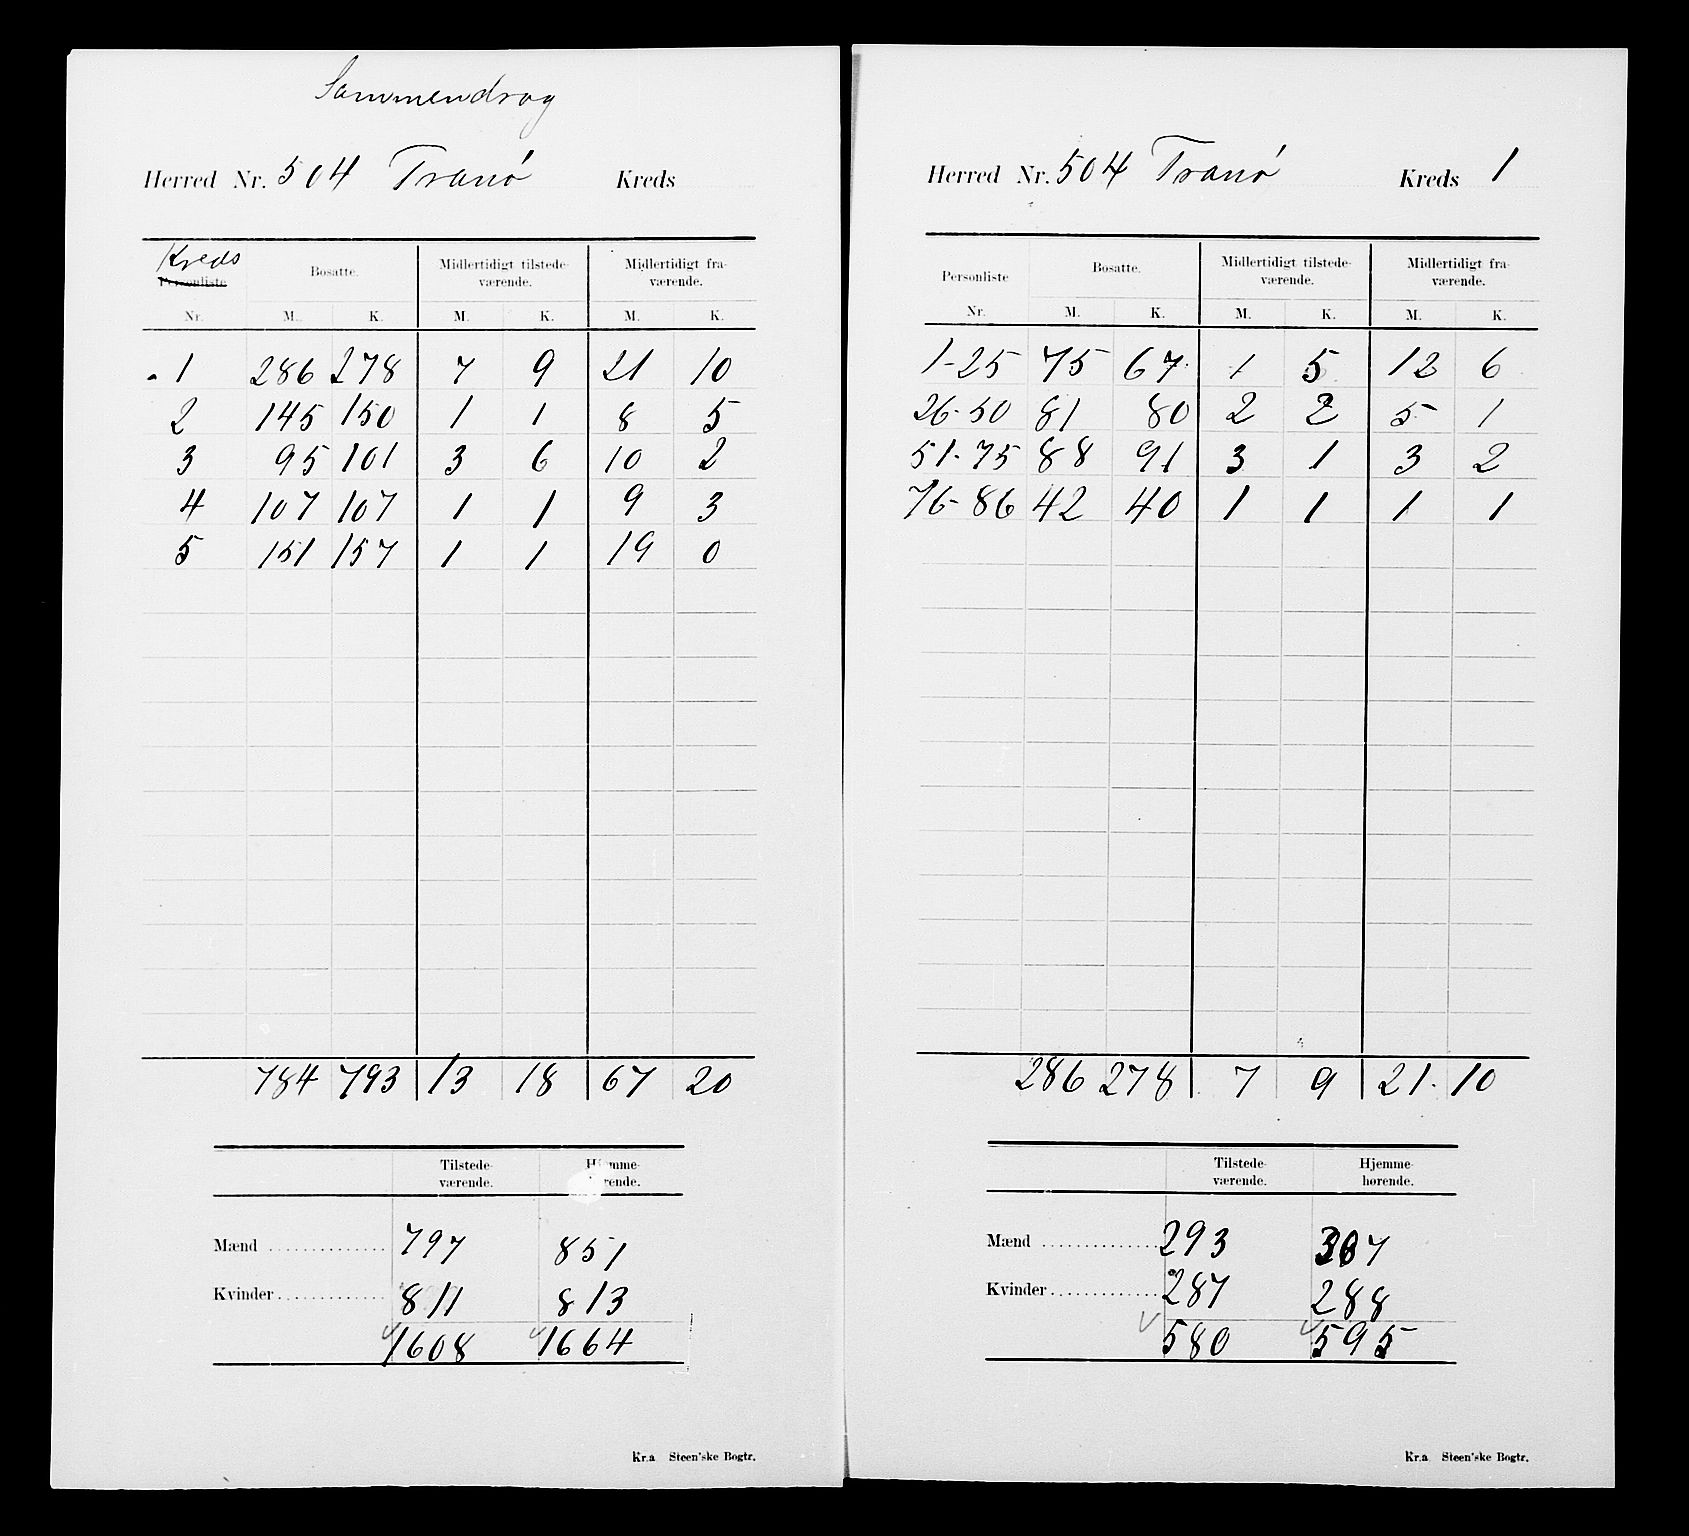 Sammendrag
Herred Nr. 504 Tranø Kreds
Kreds
Personliste Bosatte. Midlertidigt tilstede-værende. Midlertidigt fra-værende.
Nr. M. K. M. K. M. K.
1 286 278 7 9 21 10
2 145 150 1 1 8 5
3 95 101 3 6 10 2
4 107 107 1 1 9 3
5 151 157 1 1 19 0
784 793 13 18 67 20
Tilstede-værende. Hjemme-
Mænd 797 851
Kvinder 811 813
1608 1664
Kr.a Steen'ske Bogtr.
Herred Nr. 504 Tranø Kreds 1
Personliste Bosatte. Midlertidigt tilstede-værende. Midlertidigt fra-værende.
Nr. M. K. M. K. M. K.
1-25 75 67 1 5 12 6
26-50 81 80 2 2 5 1
51-75 88 91 3 1 3 2
76-86 42 40 1 1 1 1
286 278 7 9 21. 10
Tilstede-værende. Hjemme-hørende.
Mænd 293 307
Kvinder 287 288
580 595
Kr.a Steen'ske Bogtr.